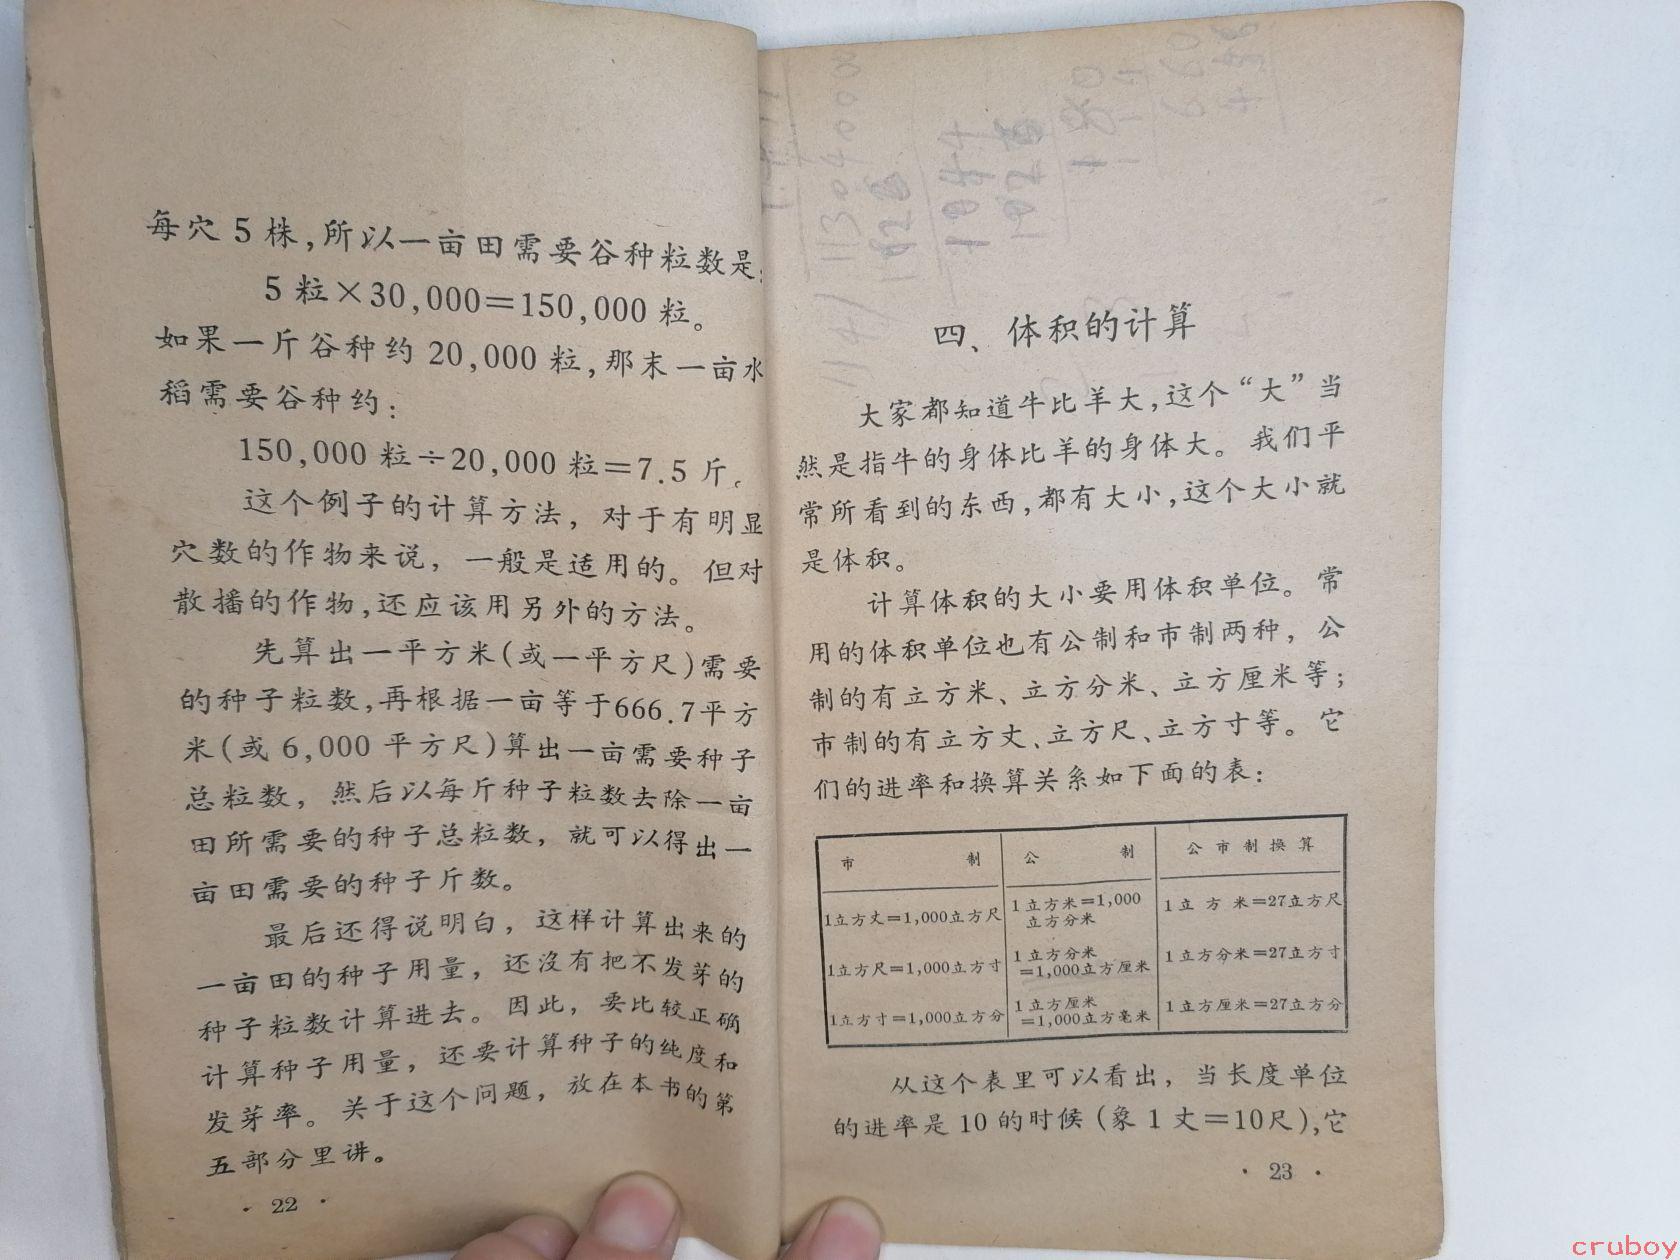 每穴 5 株,所以一亩田需要谷种粒数是:
5 粒×30,000=150,000 粒。
如果一斤谷种约 20,000 粒,那末一亩水
稻需要谷种约:
150,000 粒÷20,000 粒=7.5 斤。
这个例子的计算方法，对于有明显
穴数的作物来说，一般是适用的。但对
散播的作物,还应该用另外的方法。
先算出一平方米(或一平方尺)需要
的种子粒数,再根据一亩等于666.7平方
米(或 6,000 平方尺)算出一亩需要种子
总粒数，然后以每斤种子粒数去除一亩
田所需要的种子总粒数，就可以得出一
亩田需要的种子斤数。
最后还得说明白，这样计算出来的
一亩田的种子用量，还没有把不发芽的
种子粒数计算进去。因此，要比较正确
计算种子用量，还要计算种子的纯度和
发芽率。关于这个问题，放在本书的第
五部分里讲。
· 22 ·
四、体积的计算
大家都知道牛比羊大,这个“大”当
然是指牛的身体比羊的身体大。我们平
常所看到的东西,都有大小,这个大小就
是体积。
计算体积的大小要用体积单位。常
用的体积单位也有公制和市制两种，公
制的有立方米、立方分米、立方厘米等；
市制的有立方丈、立方尺、立方寸等。它
们的进率和换算关系如下面的表：
市 制 公 制 公市制换算
1立方丈=1,000立方尺 1立方米=1,000 1立方米=27立方尺
立方分米
1立方尺=1,000立方寸 1立方分米 1立方分米=27立方寸
=1,000立方厘米
1立方寸=1,000立方分 1立方厘米 1立方厘米=27立方分
=1,000立方毫米
从这个表里可以看出，当长度单位
的进率是 10 的时候(象 1 丈=10尺),它
· 23 ·
cruboy